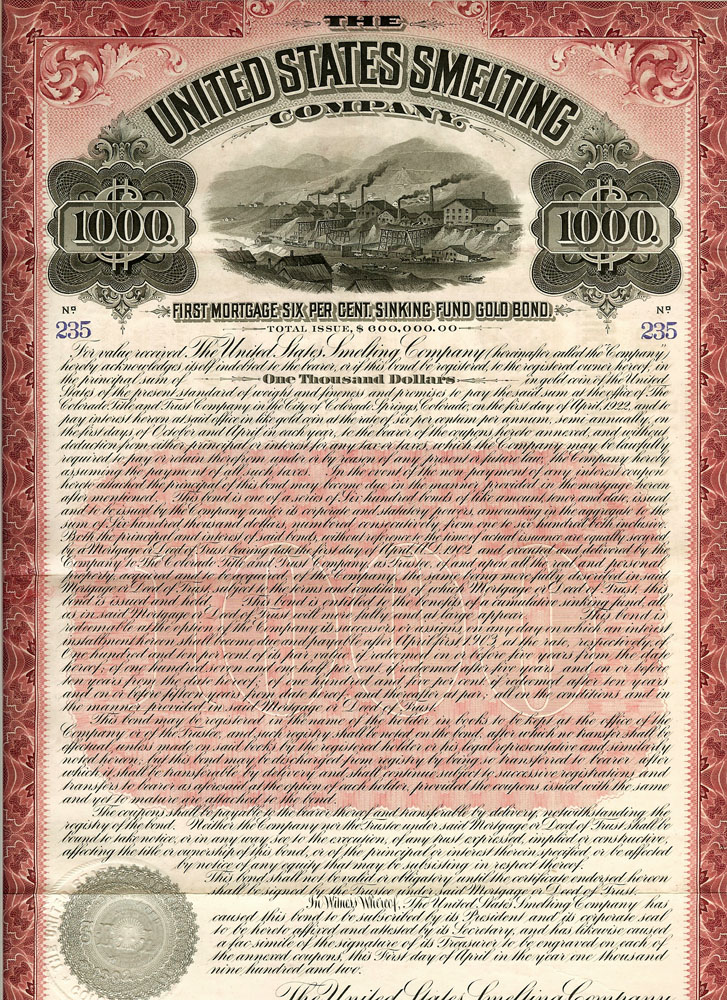 THE
UNITED STATES SMELTING
COMPANY.
1000.
1000.
FIRST MORTGAGE SIX PER CENT. SINKING FUND GOLD BOND.
TOTAL ISSUE, $600,000.00
No
235
No
235
For value received, The United States Smelting Company (hereinafter called the Company)
hereby acknowledges itself indebted to the bearer, or if this bond be registered, to the registered owner hereof, in
the principal sum of One Thousand Dollars in gold coin of the United
States of the present standard of weight and fineness and promises to pay the said sum at the office of The
Colorado Title and Trust Company in the City of Colorado Springs, Colorado, on the first day of April, 1922, and to
pay interest hereon at said office in the gold coin at the rate of six per centum per annum, semi-annually, on
the first days of October and April in each year, to the bearer of the coupons hereto annexed, and without
deduction from either principal or interest for any tax or taxes which the Company may be lawfully
required to pay or retain therefrom under or by reason of any present or future law, the Company hereby
assuming the payment of all such taxes. In the event of the non-payment of any interest coupon
hereto attached the principal of this bond may become due in the manner provided in the mortgage herein
after mentioned. This bond is one of a series of Six hundred bonds of like amount, tenor and date, issued
and to be issued by the Company under its corporate and statutory powers, amounting in the aggregate to the
sum of Six hundred thousand dollars, numbered consecutively from one to six hundred both inclusive.
Both the principal and interest of said bond, without reference to the time of actual issuance are equally secured
by a Mortgage or Deed of Trust bearing date the first day of April A.D. 1902 and executed and delivered by the
Company to The Colorado Title and Trust Company as Trustee, of and upon all the real and personal
property, acquired and to be acquired, of the Company, the same being more fully described in said
Mortgage or Deed of Trust, subject to the terms and conditions of which Mortgage or Deed of Trust, this
bond is issued and held. This bond is entitled to the benefits of a cumulative sinking fund, all
as in said Mortgage or Deed of Trust will more fully and at large appear. This bond is
redeemable at the option of the Company, its successors or assigns, on any day on which an interest
installment hereon shall become due and payable, after April first, 1903, at the rate, respectively, of
one hundred and ten per cent. of its par value if redeemed on or before five years from the date
hereof; of one hundred seven and one half per cent. if redeemed after five years and on or before
ten years from the date hereof; of one hundred and five per cent. if redeemed after ten years
and on or before fifteen years from date hereof; and thereafter at par; all on the conditions and in
the manner provided in said Mortgage or Deed of Trust.
This bond may be registered in the name of the holder in books to be kept at the office of the
Company or of the Trustee, and such registry shall be noted on the bond, after which no transfer shall be
effectual unless made on said books by the registered holder or his legal representative and similarly
noted hereon; but this bond may be discharged from registry by being transferred to bearer after
which it shall be transferable by delivery and shall continue subject to successive registrations and
transfers to bearer as aforesaid at the option of each holder, provided the coupons issued with the same
and yet to mature are attached to the bond.
The coupons shall be payable to the bearer thereof and transferable by delivery, notwithstanding the
registry of the bond. Neither the Company nor the Trustee under said Mortgage or Deed of Trust shall be
bound to take notice, or in any way see to the execution, of any trust expressed, implied or constructive,
affecting the title or ownership of this bond, or of the principal or interest therein specified, or be affected
by notice of any equity that may be subsisting in respect thereof.
This bond shall not be valid or obligatory until the certificate endorsed hereon
shall be signed by the Trustee under said Mortgage or Deed of Trust.
In Witness Whereof, The United States Smelting Company has
caused this bond to be subscribed by its President and its corporate seal
to be hereto affixed and attested by its Secretary, and has likewise caused
a fac simile of the signature of its Treasurer to be engraved on each of
the annexed coupons, this First day of April in the year one thousand
nine hundred and two.
The United States Smelting Company